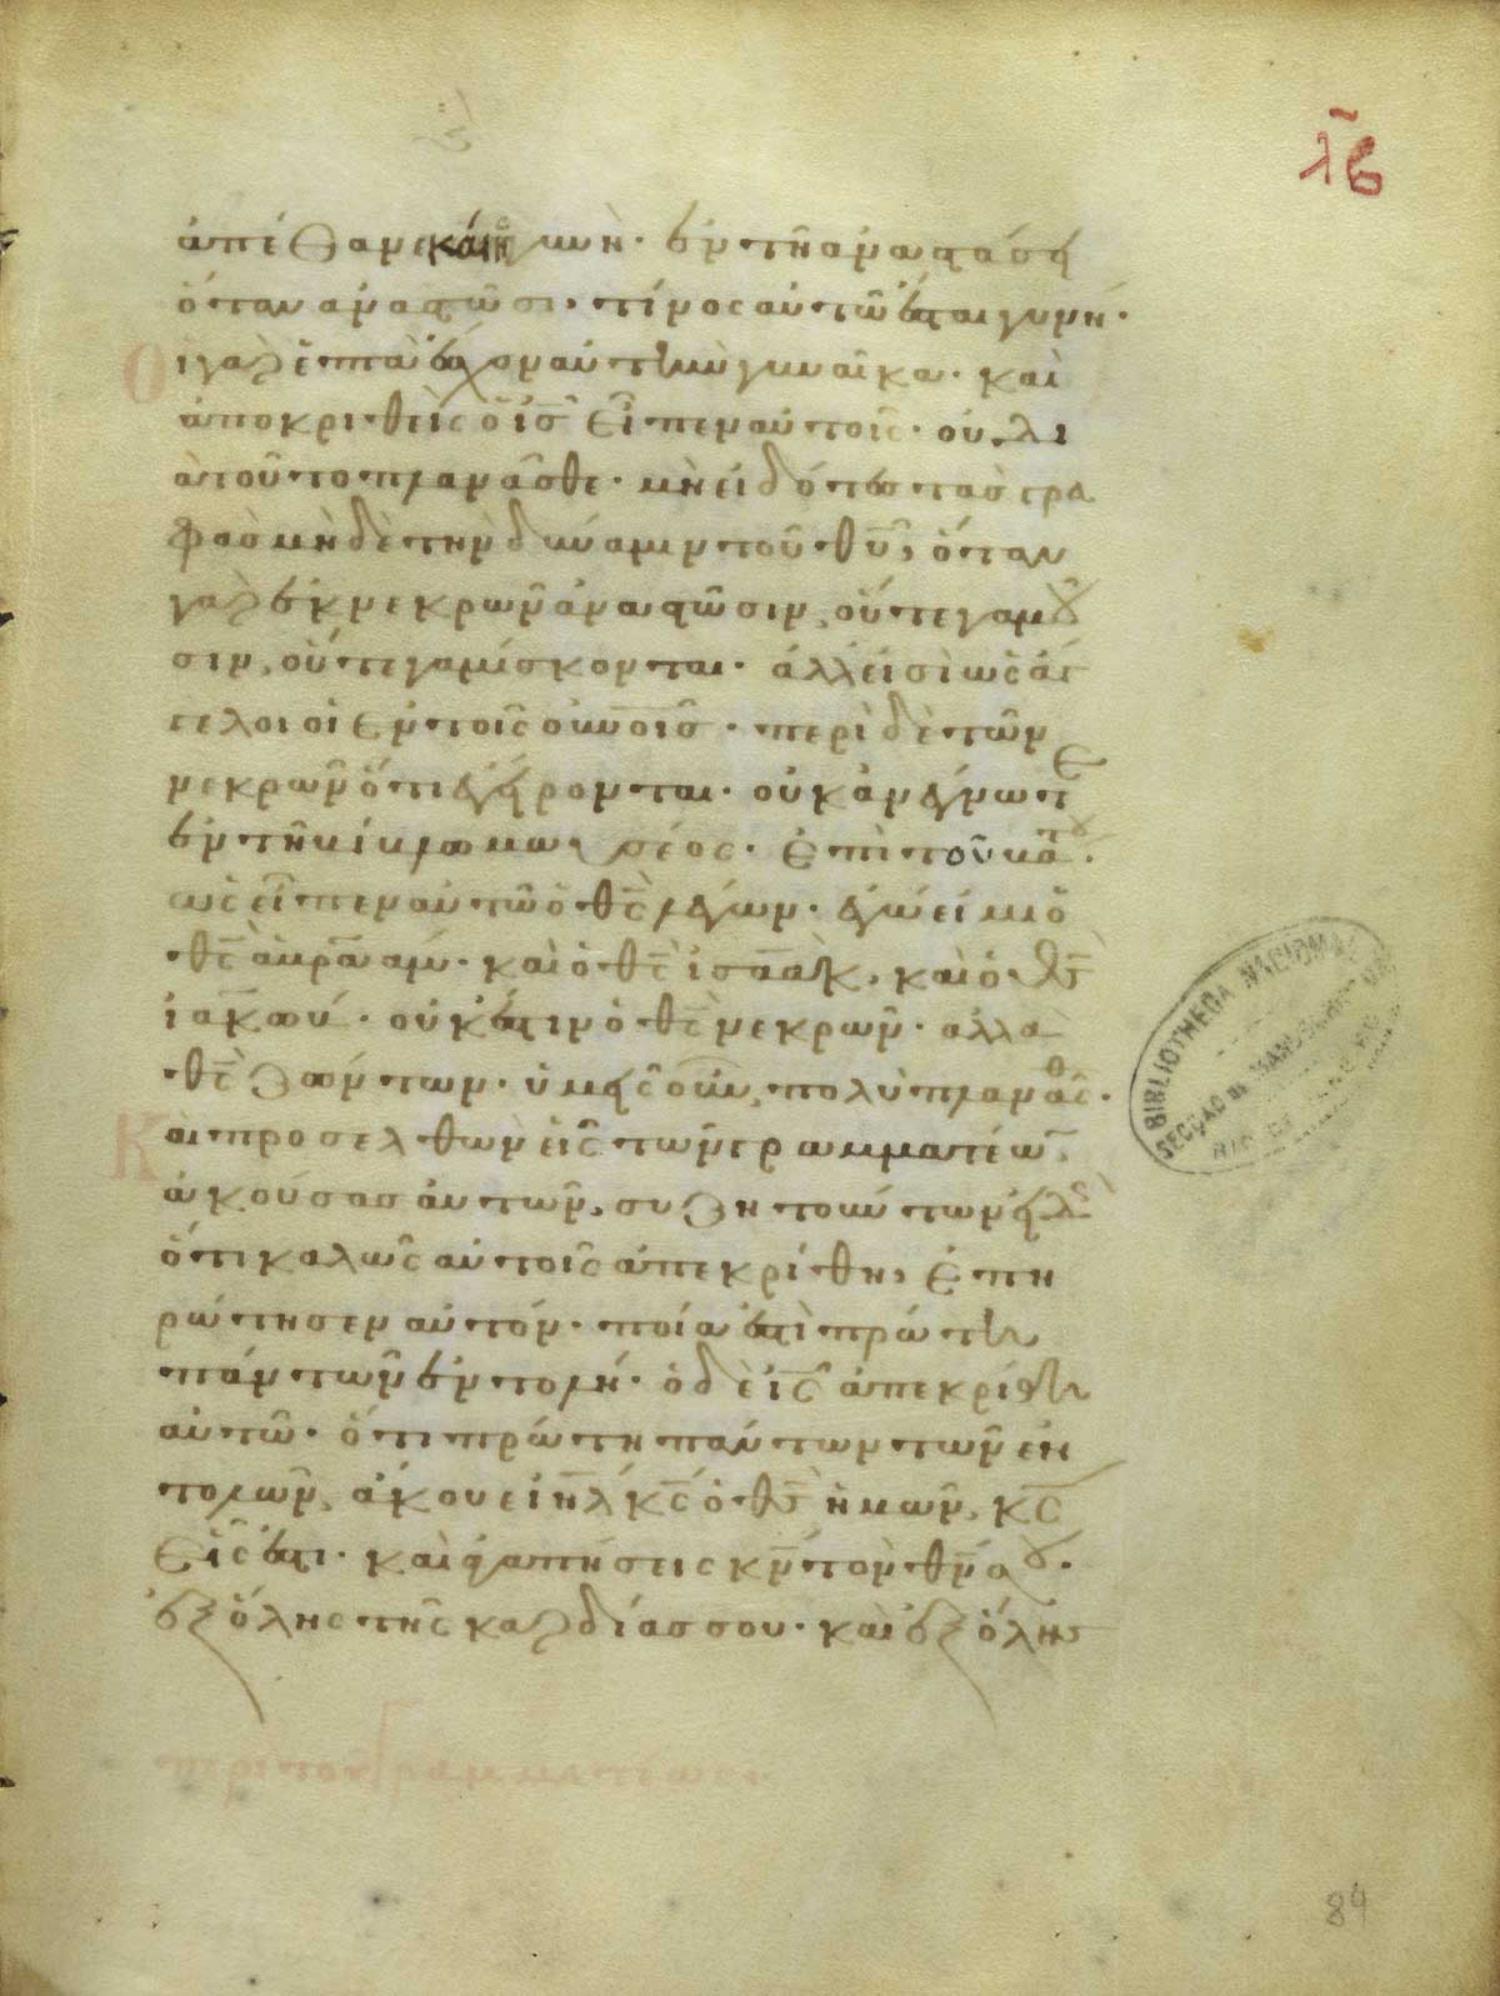 λβ
ἀπέθανε καὶ ἡ γυνή· ἐν τῆ ἀναστάσει
ὅταν ἀναστῶσι· τίνος αὐτῶ ἔσται γυνή·
Οἱ γὰρ ἑπτὰ ἔσχον αὐτὴν γυναῖκα· καὶ
ἀποκριθεὶς ὁ ις εἶπεν αὐτοῖς· οὐ δι
ὰ τοῦτο πλανᾶσθε· μὴ εἰδότες τὰς γρα
φὰς μὴ δὲ τὴν δύναμιν τοῦ θυ, ὅταν
γὰρ ἐκ νεκρῶν ἀναστῶσιν, οὔτε γαμοῦ
σιν, οὔτε γαμίσκονται· ἀλλ εἰσὶ ὡς ἄγ
γελοι οἱ ἐν τοῖς οὐνοις· περὶ δὲ τῶν
νεκρῶν ὅτι ἐγείρονται· οὐκ ἀνέγνωτε
ἐν τῆ βίβλω μωσέος· ἐπὶ τοῦ βάτου·
ὡς εἶπεν αὐτῶ ὁ θς λέγων· ἐγώ εἰμι ὁ
θς ἀβρααμ· καὶ ὁ θς ἰσαακ, καὶ ὁ θς
ἰακώβ· οὐκ ἔστιν ὁ θς νεκρῶν· αλλα
θς ζώντων· ὑμεῖς οὖν, πολὺ πλανᾶσθ·
Και προσελθὼν εἷς τῶν γραμματέων
ἀκούσας αὐτῶν, συζητούντων εἰδὼς
ὅτι καλῶς αὐτοῖς ἀπεκρίθη, ἐπη
ρώτησεν αὐτόν· ποία ἐστὶ πρώτη
πάντων ἐντολή· ὁ δὲ ις ἀπεκρίθη
αὐτῶ· ὅτι πρώτη πάντων τῶν ἐν
τολῶν, ἄκουε ιηλ κς ὁ θς ἡμῶν, κς
εἷς ἐστι· καὶ ἀγαπήσεις κν τὸν θν σου·
ἐξ ὅλης τῆς καρδίας σου· καὶ ἐξ ὅλης
περὶ τοῦ γραμματέως
BIBLIOTHECA NACIONAL
SECÇÃO DE MANUSCRIPTOS
RIO DE JANEIRO
84